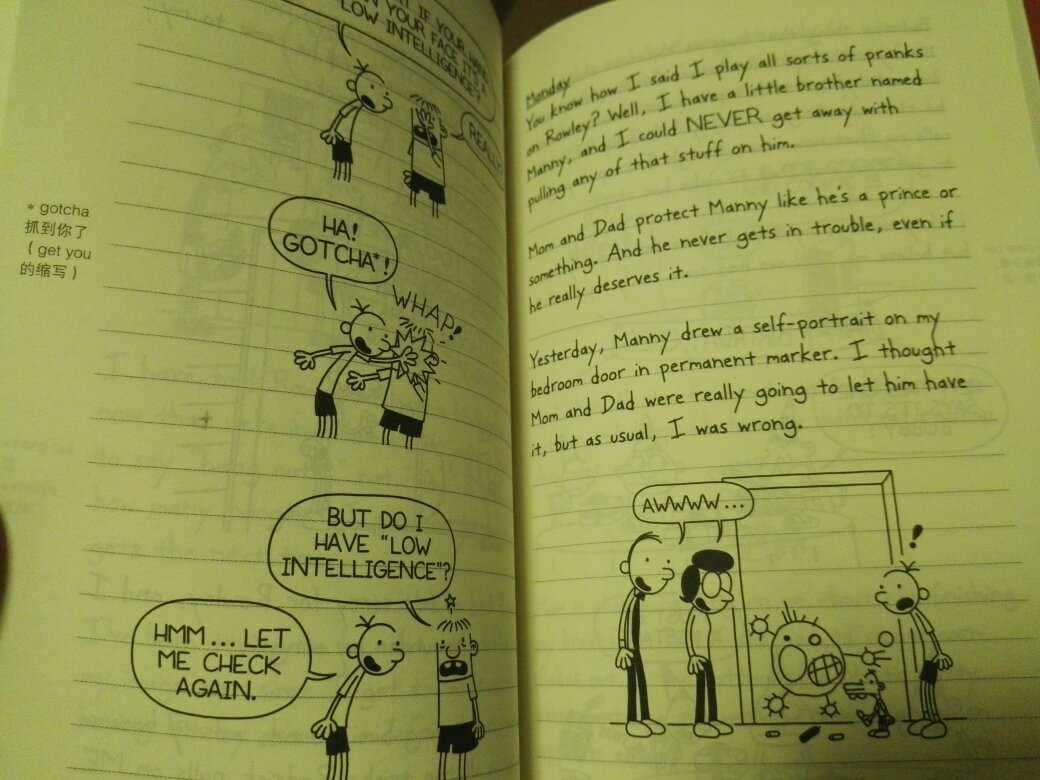 IF YOUR HAND
YOUR FACE IT'S A
LOW INTELLIGENCE?
REALLY
* gotcha
抓到你了
( get you
的缩写 )
HA!
GOTCHA*!
WHAP!
BUT DO I
HAVE "LOW
INTELLIGENCE"?
HMM... LET
ME CHECK
AGAIN.
Monday
You know how I said I play all sorts of pranks
on Rowley? Well, I have a little brother named
Manny, and I could NEVER get away with
pulling any of that stuff on him.
Mom and Dad protect Manny like he's a prince or
something. And he never gets in trouble, even if
he really deserves it.
Yesterday, Manny drew a self-portrait on my
bedroom door in permanent marker. I thought
Mom and Dad were really going to let him have
it, but as usual, I was wrong.
AWWWW...
!